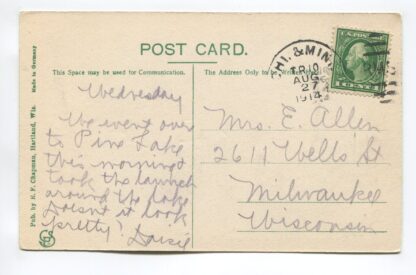 POST CARD.
This Space may be used for Communication.
The Address Only to be
Made in Germany
Pub. by E. F. Chapman, Hartland, Wis.
Wednesday
We went over
to Pine Lake
this morning &
took the launch
around the lake
Doesn't it look
pretty? Daisie
HI. & MIN
TR.10
AUG
27
1914
U.S. POSTAGE
1 CENT 1
Mrs. E. Allen
2611 Wells St
Milwaukee
Wisconsin